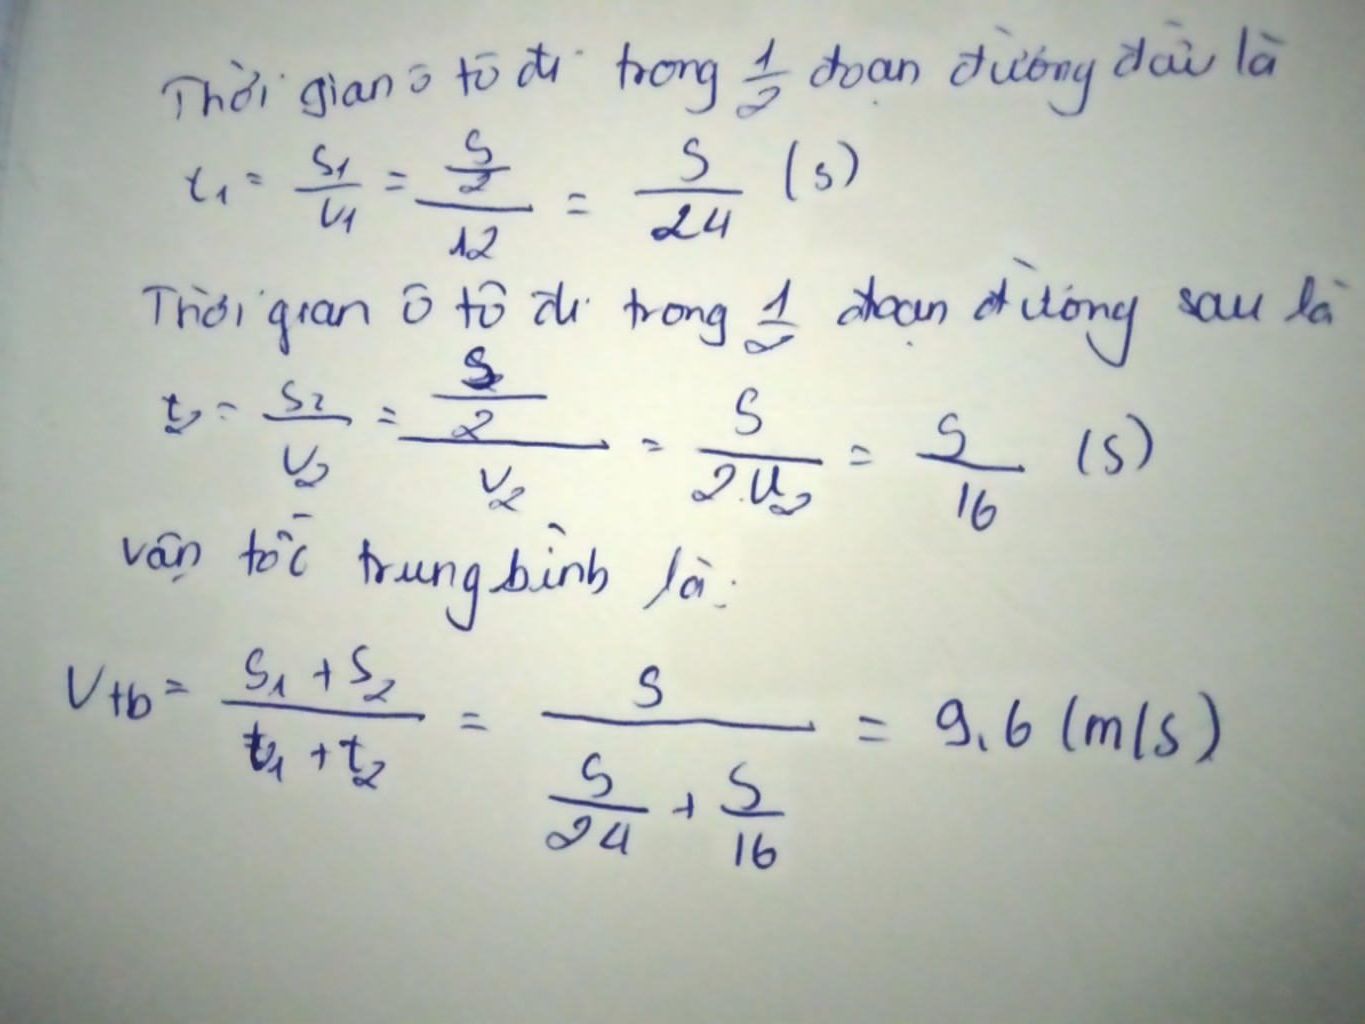 Thời gian ô tô đi trong 1/2 đoạn đường đầu là
t₁ = S₁/V₁ = (S/2)/12 = S/24 (s)
Thời gian ô tô đi trong 1/2 đoạn đường sau là
t₂ = S₂/V₂ = (S/2)/V₂ = S/(2.V₂) = S/16 (s)
vận tốc trung bình là:
Vtb = (S₁ + S₂)/(t₁ + t₂) = S/(S/24 + S/16) = 9,6 (m/s)